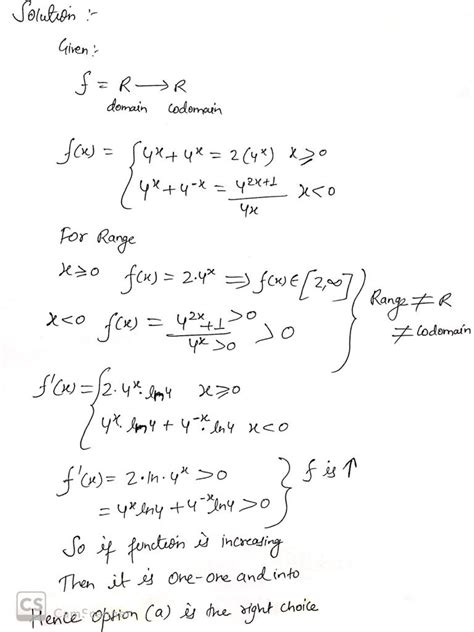 Solution :-
Given :-
f = R → R
domain codomain
f(x) = { 4^x + 4^x = 2(4^x) x ≥ 0
4^x + 4^-x = (4^2x+1)/4x x < 0
For Range
x ≥ 0 f(x) = 2·4^x ⇒ f(x) ∈ [2,∞]
x < 0 f(x) = (4^2x+1 > 0)/(4^x > 0) > 0
Range ≠ R
≠ Codomain
f'(x) = { 2·4^x·ln4 x ≥ 0
4^x·ln4 + 4^-x·ln4 x < 0
f'(x) = 2·ln·4^x > 0
= 4^x ln4 + 4^-x ln4 > 0
f is ↑
So if function is increasing
Then it is one-one and into
Hence option (a) is the right choice
CS